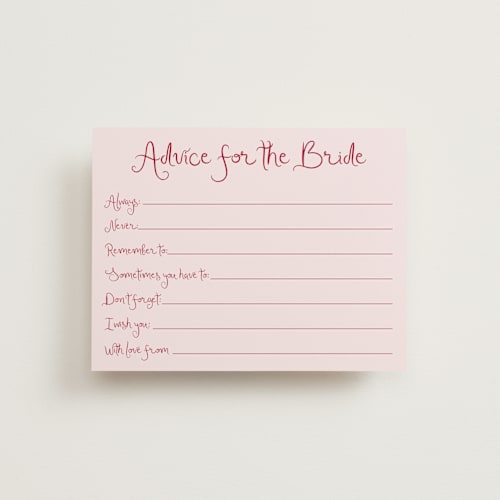 Advice for the Bride
Always:
Never:
Remember to:
Sometimes you have to:
Don't forget:
I wish you:
With love from